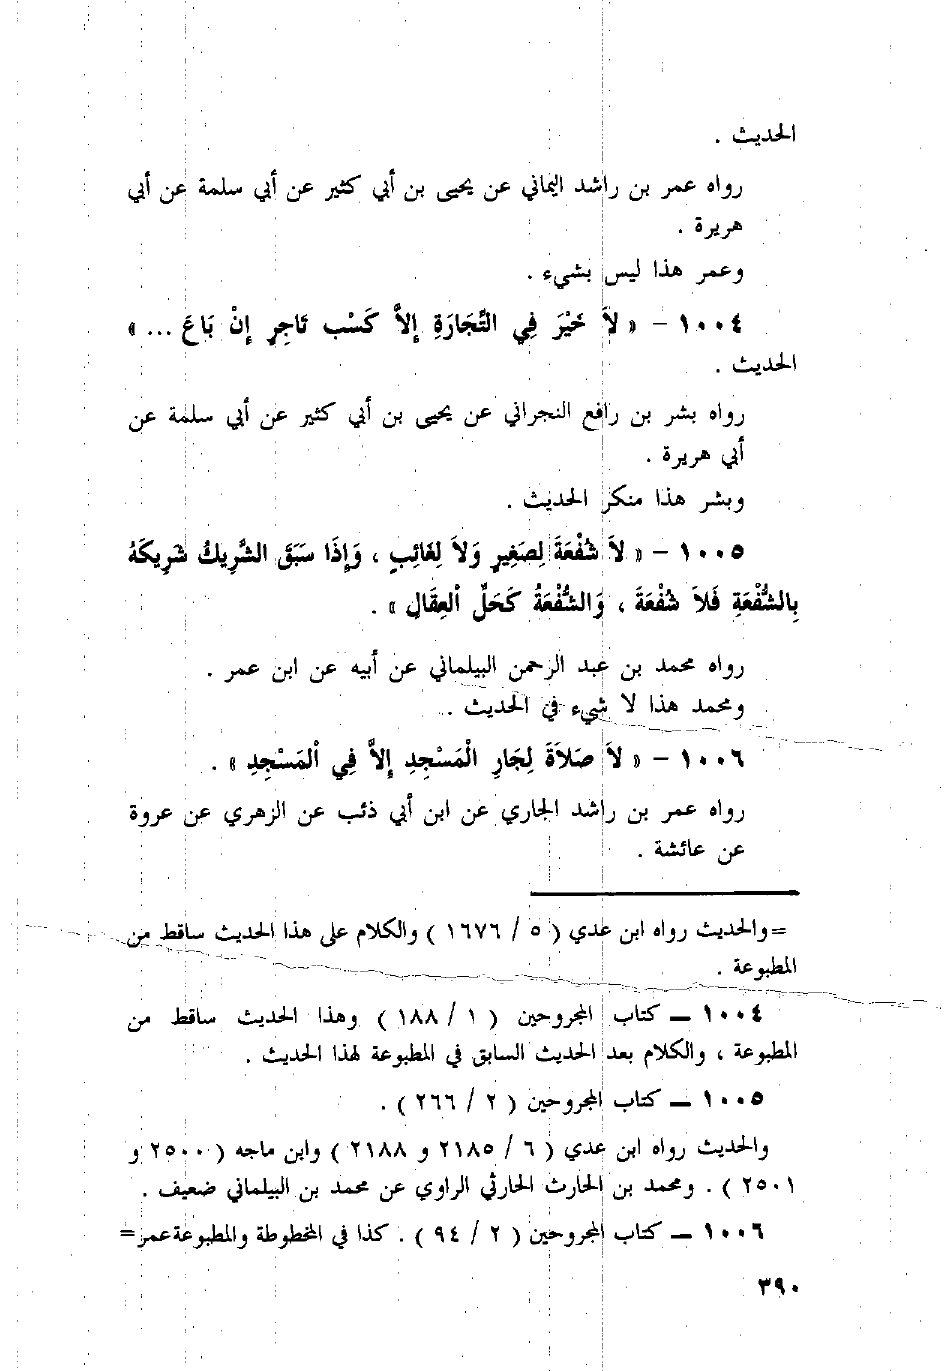 الحديث .
رواه عمر بن راشد اليماني عن يحيى بن أبي كثير عن أبي سلمة عن أبي
هريرة .
وعمر هذا ليس بشيء .
١٠٠٤ – « لاَ خَيْرَ فِي التِّجَارَةِ إِلاَّ كَسْب تَاجِرٍ إِنْ بَاعَ ... »
الحديث .
رواه بشر بن رافع النجراني عن يحيى بن أبي كثير عن أبي سلمة عن
أبي هريرة .
وبشر هذا منكر الحديث .
١٠٠٥ – « لاَ شُفْعَةَ لِصَغِيرٍ وَلاَ لِغَائِبٍ ، وَإِذَا سَبَقَ الشَّرِيكُ شَرِيكَهُ
بِالشُّفْعَةِ فَلاَ شُفْعَةَ ، وَالشُّفْعَةُ كَحَلِّ ٱلعِقَالِ » .
رواه محمد بن عبد الرحمن البيلماني عن أبيه عن ابن عمر .
ومحمد هذا لا شيء في الحديث .
١٠٠٦ – « لاَ صَلاَةَ لِجَارِ الْمَسْجِدِ إِلاَّ فِي ٱلمَسْجِدِ » .
رواه عمر بن راشد الجاري عن ابن أبي ذئب عن الزهري عن عروة
عن عائشة .
=والحديث رواه ابن عدي ( ٥ / ١٦٧٦ ) والكلام على هذا الحديث ساقط من
المطبوعة .
١٠٠٤ ــ كتاب المجروحين ( ١ / ١٨٨ ) وهذا الحديث ساقط من
المطبوعة ، والكلام بعد الحديث السابق في المطبوعة لهذا الحديث .
١٠٠٥ ــ كتاب المجروحين ( ٢ / ٢٦٦ ) .
والحديث رواه ابن عدي ( ٦ / ٢١٨٥ و ٢١٨٨ ) وابن ماجه ( ٢٥٠٠ و
٢٥٠١ ) . ومحمد بن الحارث الحارثي الراوي عن محمد بن البيلماني ضعيف .
١٠٠٦ ــ كتاب المجروحين ( ٢ / ٩٤ ) . كذا في المخطوطة والمطبوعة عمر=
٣٩٠